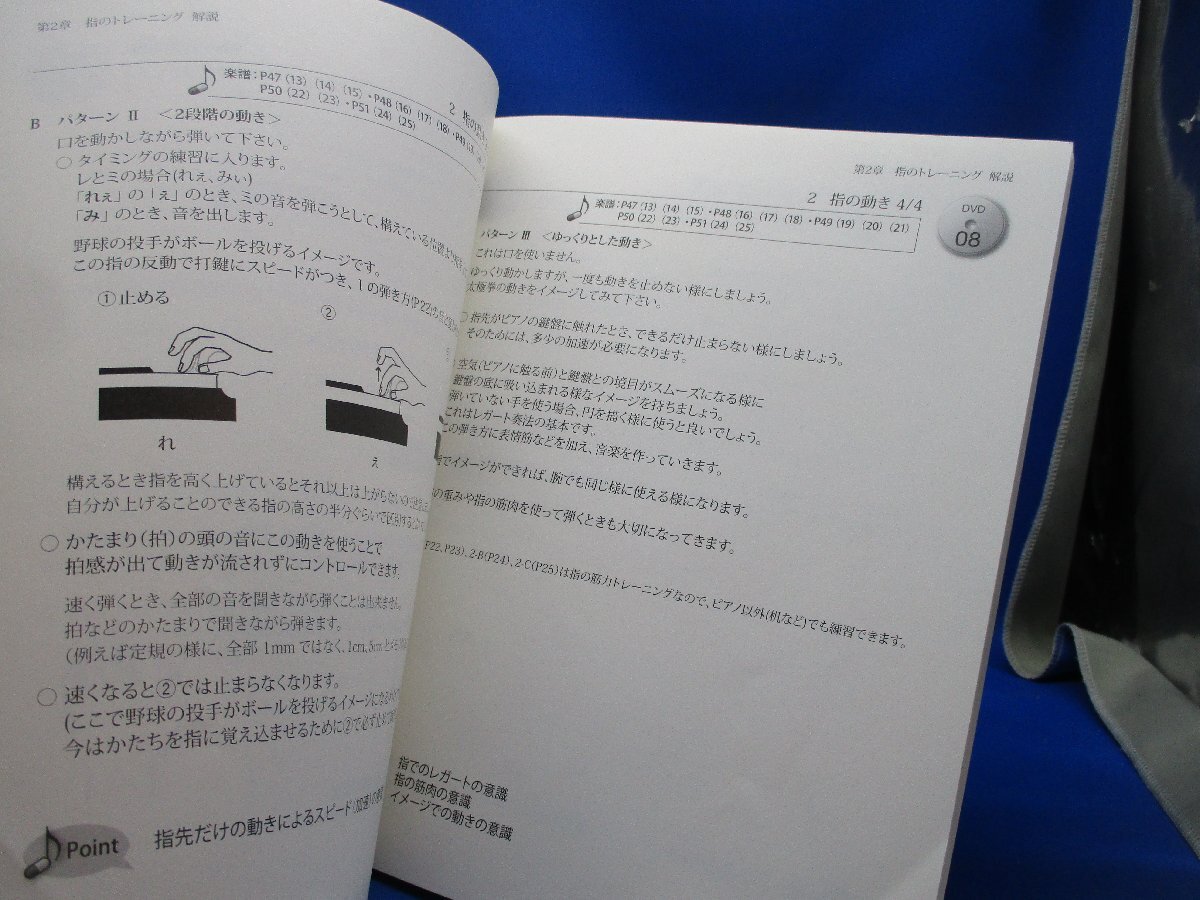 第2章 指のトレーニング 解説
楽譜：P47（13）（14）（15）・P48（16）（17）（18）・P49
P50（22）（23）・P51（24）（25）
2 指の
B パターン Ⅱ ＜2段階の動き＞
口を動かしながら弾いて下さい。
○ タイミングの練習に入ります。
レとミの場合(れぇ、みぃ)
「れぇ」の「ぇ」のとき、ミの音を弾こうとして、構えている
「み」のとき、音を出します。
野球の投手がボールを投げるイメージです。
この指の反動で打鍵にスピードがつき、1の弾き方(P22の
①止める
②
れ
ぇ
構えるとき指を高く上げているとそれ以上は上がらない
自分が上げることのできる指の高さの半分ぐらいで
○ かたまり(拍)の頭の音にこの動きを使うことで
拍感が出て動きが流されずにコントロールできます。
速く弾くとき、全部の音を聞きながら弾くことは出来ません。
拍などのかたまりで聞きながら弾きます。
(例えば定規の様に、全部 1mm ではなく、1cm、5cm と
○ 速くなると②では止まらなくなります。
(ここで野球の投手がボールを投げるイメージになる
今はかたちを指に覚え込ませるために②で必ず
Point
指先だけの動きによるスピード(加速)
第2章 指のトレーニング 解説
2 指の動き 4/4
楽譜：P47（13）（14）（15）・P48（16）（17）（18）・P49（19）（20）（21）
P50（22）（23）・P51（24）（25）
DVD
08
パターン Ⅲ ＜ゆっくりとした動き＞
これは口を使いません。
ゆっくり動かしますが、一度も動きを止めない様にしましょう。
太極拳の動きをイメージしてみて下さい。
○ 指先がピアノの鍵盤に触れたとき、できるだけ止まらない様にしましょう。
そのためには、多少の加速が必要になります。
空気(ピアノに触る前)と鍵盤との境目がスムーズになる様に
鍵盤の底に吸い込まれる様なイメージを持ちましょう。
弾いていない手を使う場合、円を描く様に使うと良いでしょう。
これはレガート奏法の基本です。
この弾き方に表情筋などを加え、音楽を作っていきます。
でイメージができれば、腕でも同じ様に使える様になります。
の重みや指の筋肉を使って弾くときも大切になってきます。
P22、P23)、2-B(P24)、2-C(P25)は指の筋力トレーニングなので、ピアノ以外(机など)でも練習できます。
指でのレガートの意識
指の筋肉の意識
イメージでの動きの意識